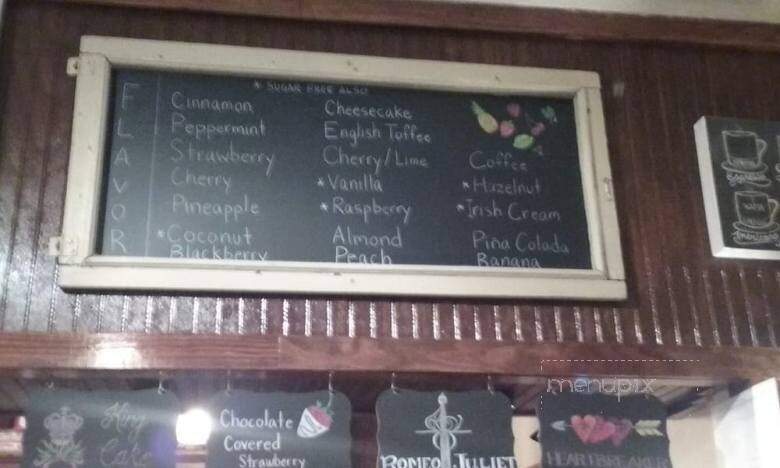 * SUGAR FREE ALSO
FLAVOR
Cinnamon
Peppermint
Strawberry
Cherry
Pineapple
*Coconut
Blackberry
Cheesecake
English Toffee
Cherry/Lime
*Vanilla
*Raspberry
Almond
Peach
Coffee
*Hazelnut
*Irish Cream
Pina Colada
Banana
King
Cake
Chocolate
Covered
Strawberry
ROMEO & JULIET
HEARTBREAKER
menupix